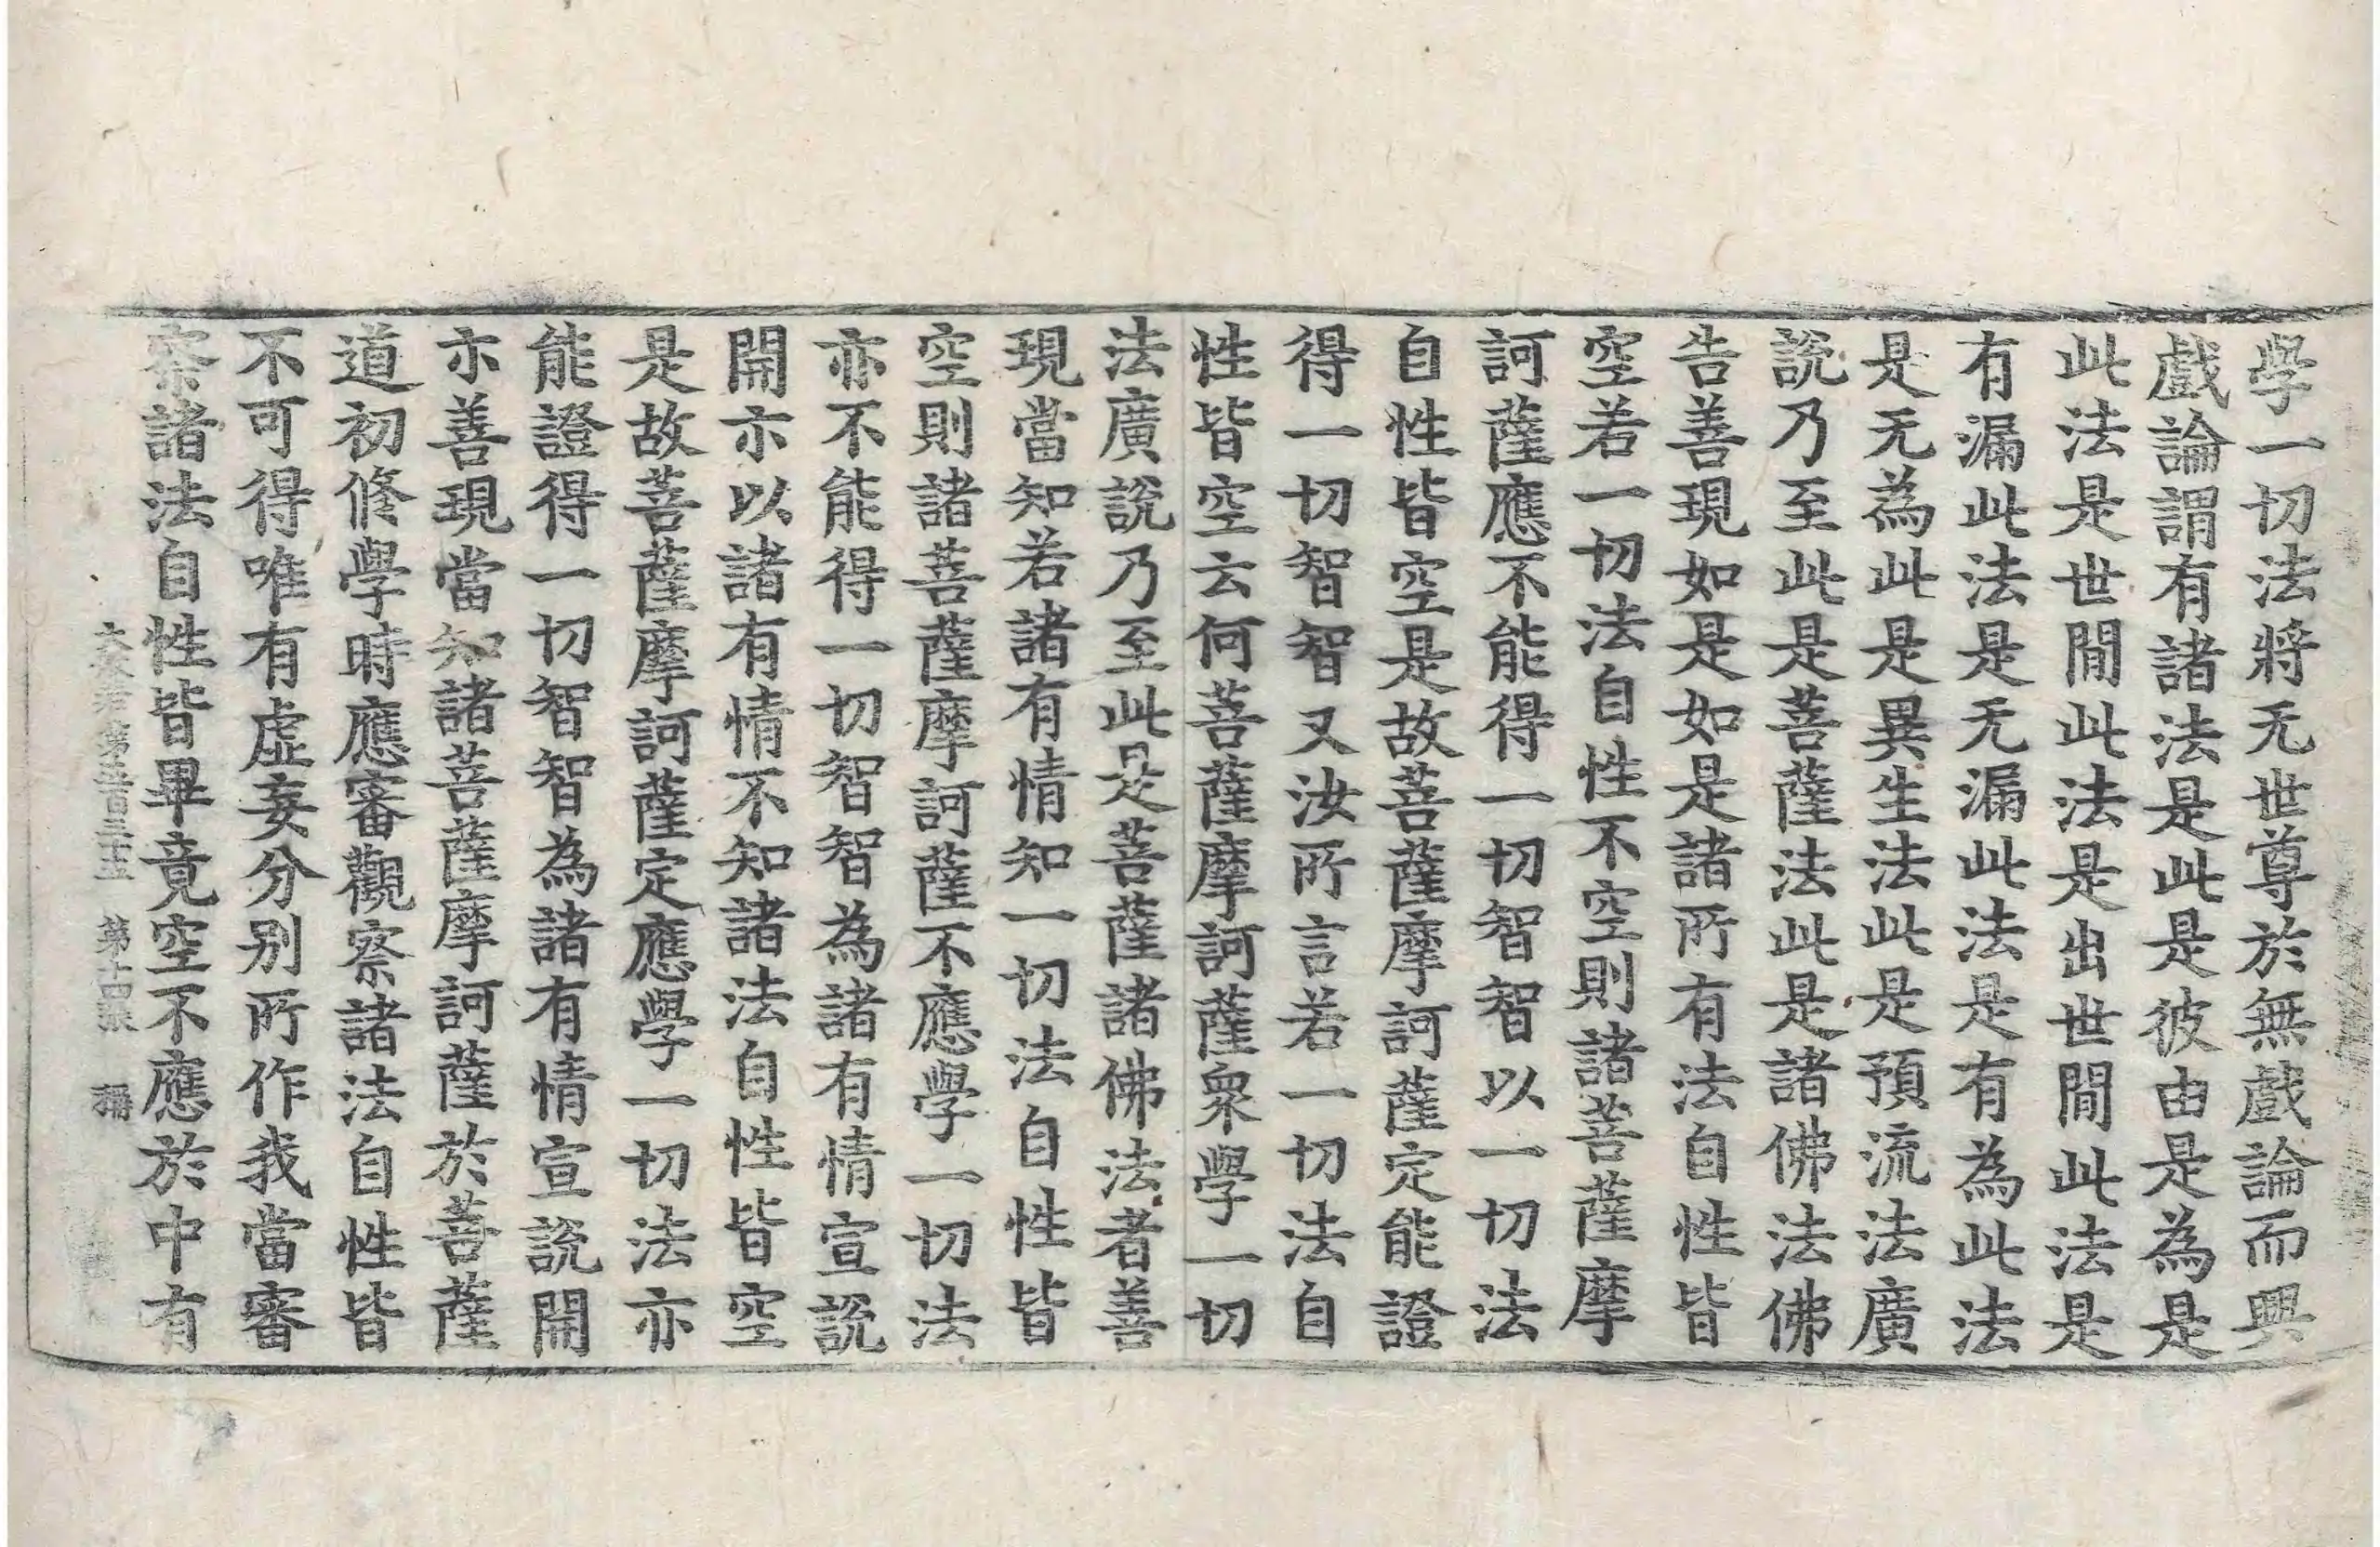 學一切法將无世尊於無戲論而興
戲論謂有諸法是此是彼由是為是
此法是世間此法是出世間此法是
有漏此法是无漏此法是有為此法
是无為此是異生法此是預流法廣
說乃至此是菩薩法此是諸佛法佛
告善現如是如是諸所有法自性皆
空若一切法自性不空則諸菩薩摩
訶薩應不能得一切智智以一切法
自性皆空是故菩薩摩訶薩定能證
得一切智智又汝所言若一切法自
性皆空云何菩薩摩訶薩衆學一切
法廣說乃至此是菩薩諸佛法者善
現當知若諸有情知一切法自性皆
空則諸菩薩摩訶薩不應學一切法
亦不能得一切智智為諸有情宣說
開亦以諸有情不知諸法自性皆空
是故菩薩摩訶薩定應學一切法亦
能證得一切智智為諸有情宣說開
亦善現當知諸菩薩摩訶薩於菩薩
道初修學時應審觀察諸法自性皆
不可得唯有虛妄分別所作我當審
察諸法自性皆畢竟空不應於中有
第十四張